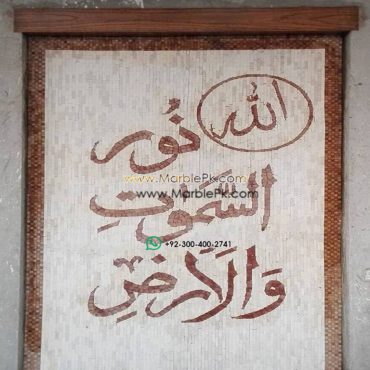 الله نُور
www.MarblePk.com
السَّمٰوٰتِ
www.MarblePk.com
+92-300-400-2741
وَالْأَرْضِ